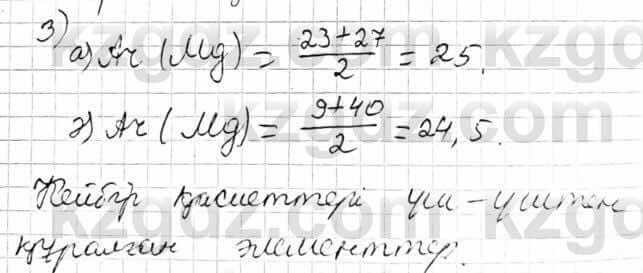 3)
а) Ar (Mg) = 23+27/2 = 25.
ә) Ar (Mg) = 9+40/2 = 24,5.
Кейбір қасиеттері үш-үштен
құралған элементтер.